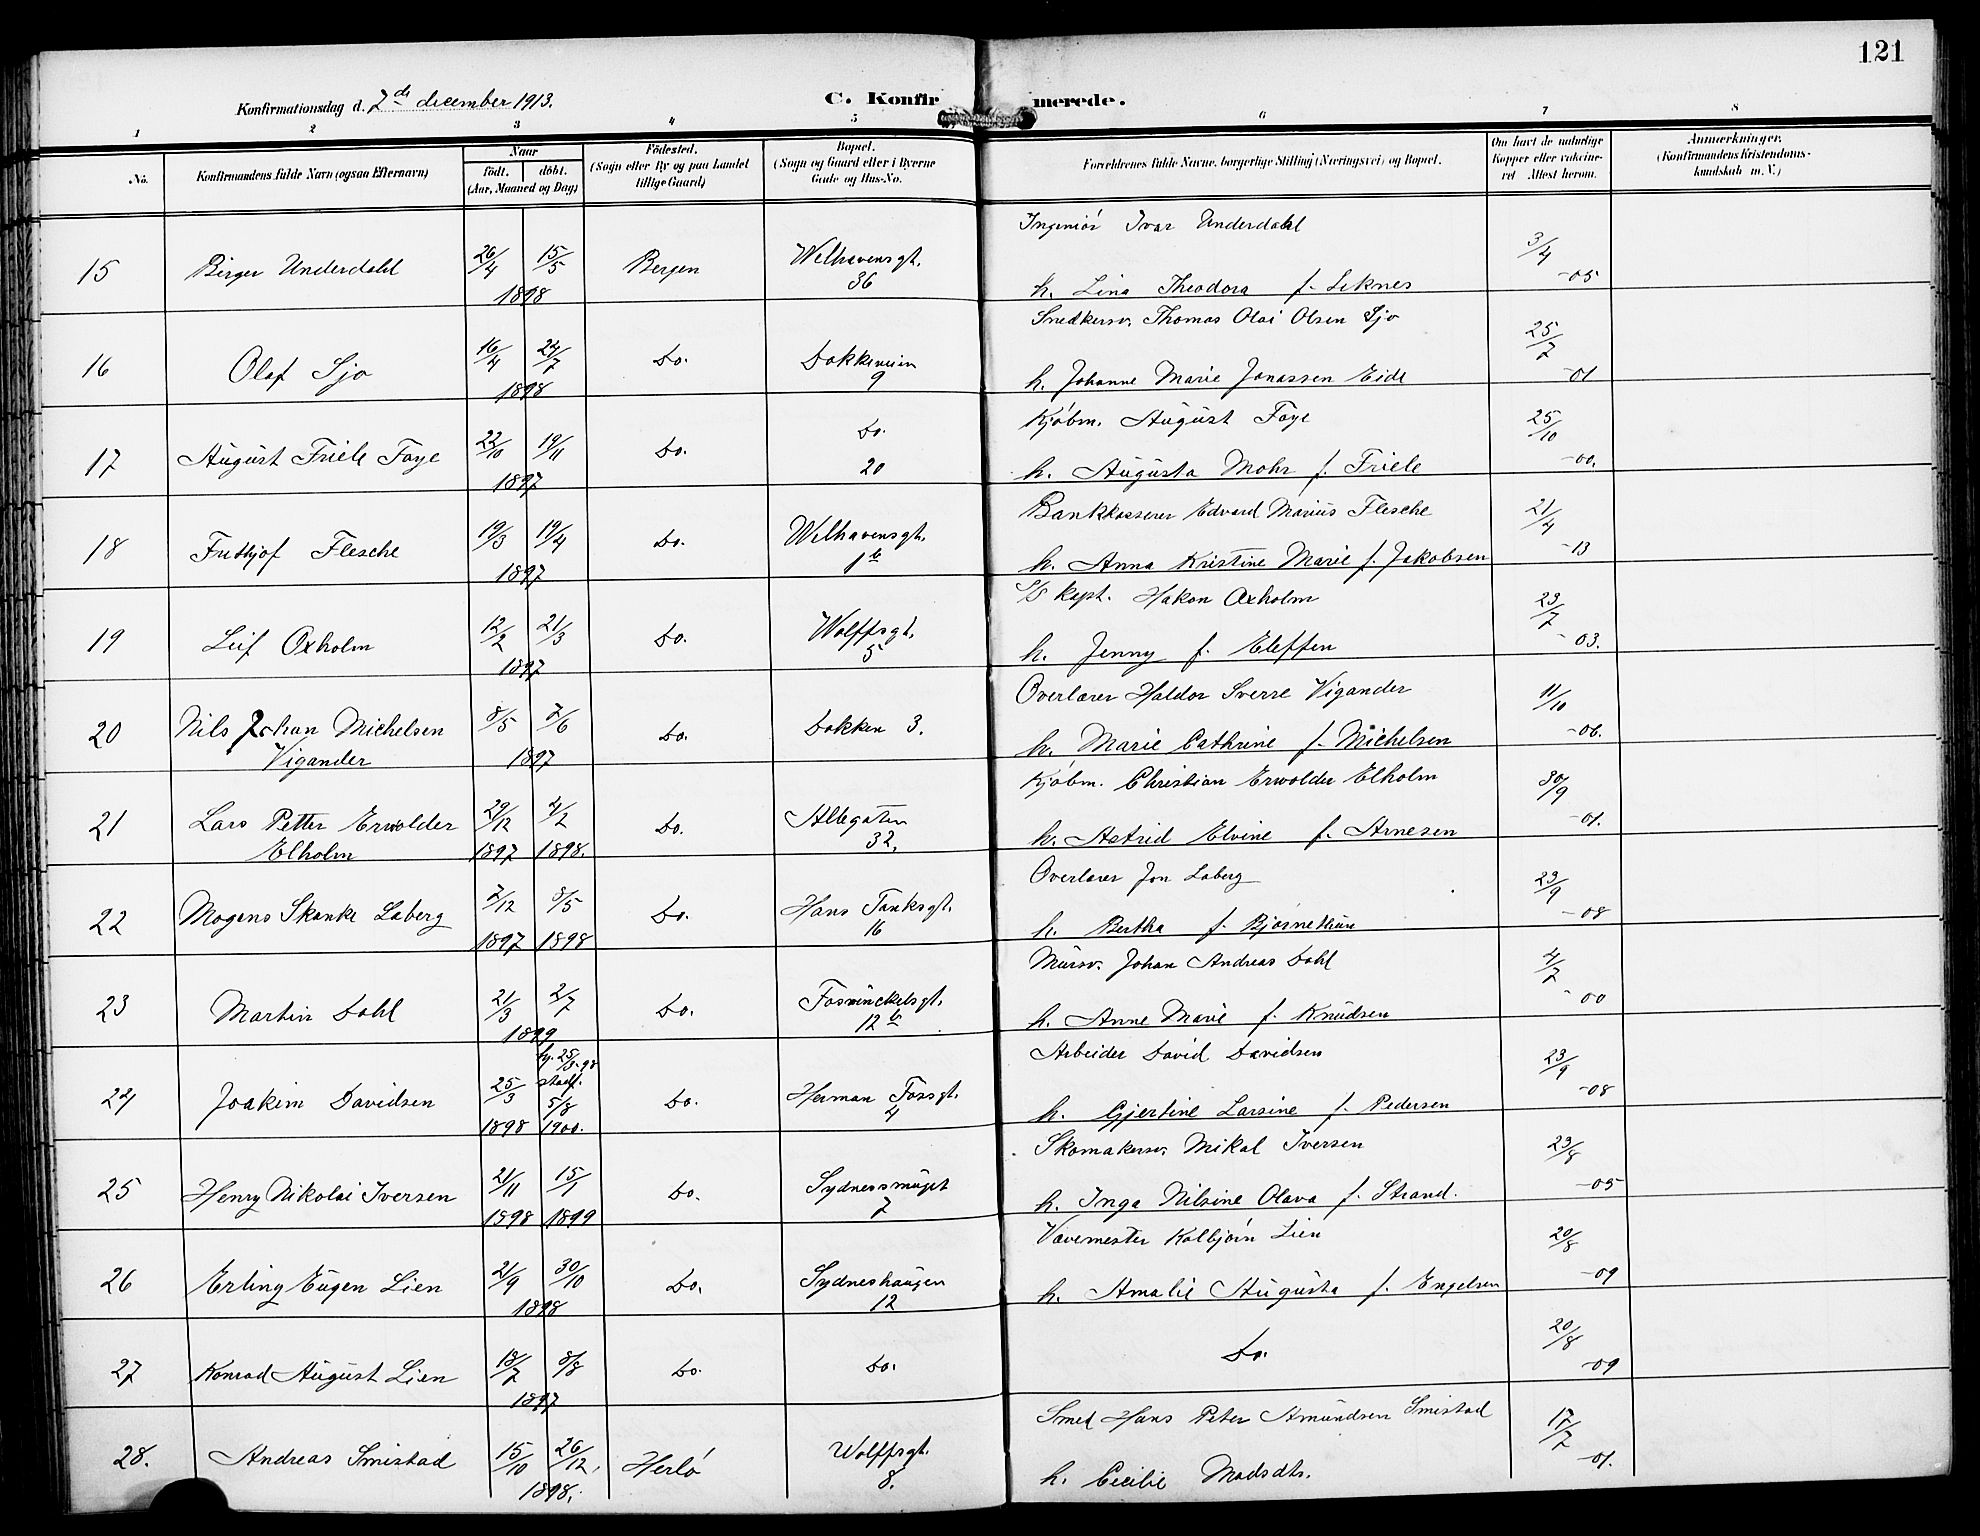 121
Konfirmationsdag d. 7de december 1913.
C. Konfirmerede.
1 2 3 4 5 6 7 8
No.
Konfirmandens fulde Navn (ogsaa Efternavn)
Naar
født. døbt.
(Aar, Maaned og Dag)
Fødested.
(Sogn eller By og paa Landet
tillige Gaard)
Bopæl.
(Sogn og Gaard eller i Byerne
Gade og Hus-No.
Forældrenes fulde Navne, borgerlige Stilling (Næringsvei) og Bopæl.
Om havt de naturlige
Kopper eller vaccine-
ret Attest herom.
Anmærkninger.
(Konfirmandens Kristendoms-
kundskab m. V.)
15 Birger Underdahl 26/4 15/5 1898 Bergen Welhavensgt. 36
Ingeniør Ivar Underdahl
h. Lina Theodora f. Leknes 3/4 -05
16 Olaf Sjo 16/4 24/7 1898 Do. Dokkeveien 9
Snedkersv. Thomas Olai Olsen Sjo
h. Johanne Marie Jonassen Eide 25/7 -01
17 August Friele Faye 22/10 19/11 1897 Do. Do. 20
Kjøbm. August Faye
h. Augusta Mohr f. Friele 25/10 -00.
18 Fridtjof Flesche 19/3 19/4 1897 Do. Welhavensgt. 1b
Bankkasserer Edvard Marius Flesche
h. Anna Kristine Marie f. Jakobsen 21/4 -13
19 Leif Oxholm 12/2 21/3 1897 Do. Wolffsgt. 5
S/S kapt. Hakon Oxholm
h. Jenny f. Eleffen 23/7 -03.
20 Nils Johan Michelsen
Vigander 8/5 7/6 1897 Do. Dokken 3.
Overlærer Haldor Sverre Vigander
h. Marie Cathrine f. Michelsen 11/10 -06.
21 Lars Petter Erwolder
Elholm 29/12 1897 4/2 1898. Do. Allegaten 32.
Kjøbm. Christian Erwolder Elholm
h. Astrid Elvine f. Arnesen 30/9 -01.
22 Mogens Skanke Laberg 7/12 1897 8/5 1898 Do. Hans Tanksgt. 16
Overlærer Jon Laberg
h. Bertha f. Bjørnethun 23/9 -08
23 Martin Dahl 21/3 2/7 1899 Do. Foswinckelsgt. 12b
Mursv. Johan Andreas Dahl
h. Anne Marie f. Knudsen 4/7 -00
24 Joakim Davidsen 25/3 1898 hj. 25/3-98
stadf.
5/8
1900. Do. Herman Fossgt. 4
Arbeider David Davidsen
h. Gjertine Larsine f. Pedersen 23/9 -08
25 Henry Nikolai Iversen 21/11 1898 15/1 1899 Do. Sydnessmuget 7
Skomakersv. Mikal Iversen
h. Inga Nilsine Olava f. Strand. 23/8 -05
26 Erling Eugen Lien 21/9 30/10 1898 Do. Sydneshaugen 12
Vævemester Kolbjørn Lien
h. Amalie Augusta f. Engelsen 20/8 -09
27 Konrad August Lien 18/7 8/8 1897 Do. Do.
Do. 20/8 -09
28. Andreas Smistad 15/10 26/12. 1898. Herlø Wolffsgt. 8.
Smed Hans Peter Amundsen Smistad
h. Cecilie Madsdtr. 17/7 -01.